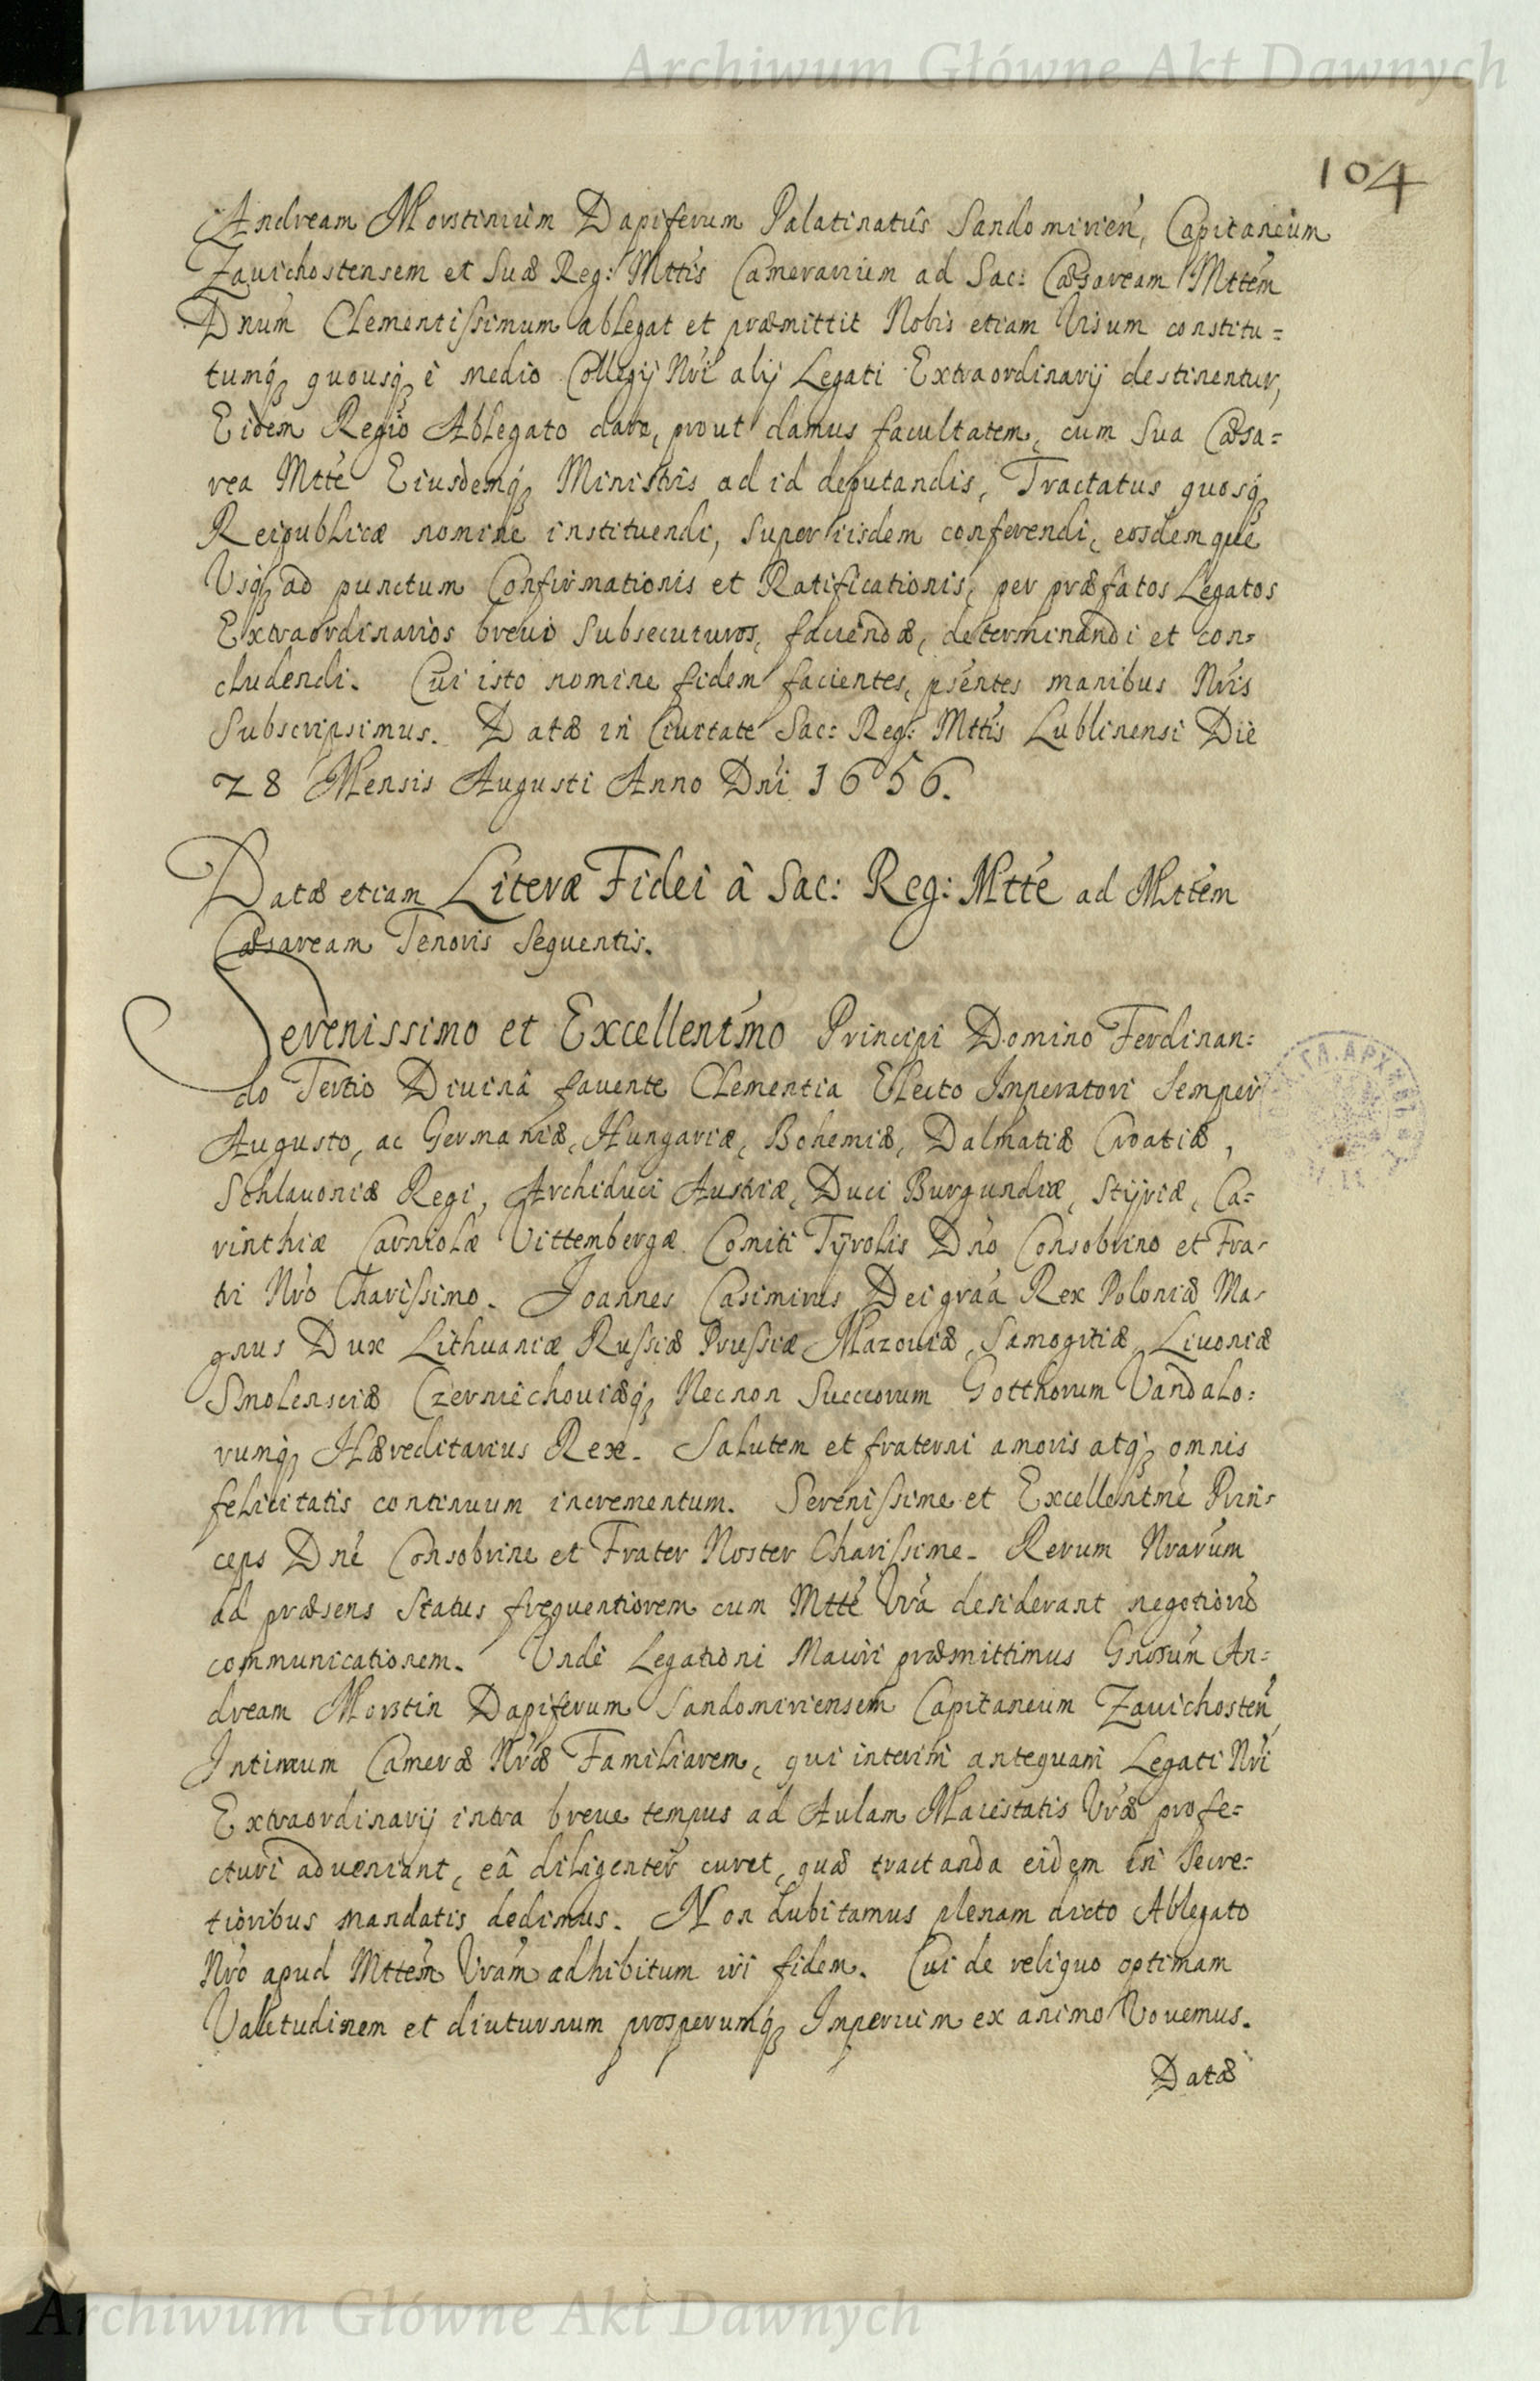 Archiwum Główne Akt Dawnych
104
Andream Morstinium Dapiferum Palatinatûs Sandomirien, Capitaneum
Zauichostensem et Suæ Reg: Mttis Camerarium ad Sac: Cæsaream Mttem
Dnum Clementissimum ablegat et præmittit Nobis etiam Visum constitu=
tumq, quousq, è medio Collegij Nri alij Legati Extraordinarij destinentur,
Eidem Regio Ablegato dare, prout damus facultatem, cum Sua Cæsa=
rea Mtte Eiusdemq, Ministris ad id deputandis, Tractatus quosq,
Reipublicæ nomine instituendi, super iisdem conferendi, eosdemque
Vsq, ad punctum Confirmationis et Ratificationis, per præfatos Legatos
Extraordinarios breui subsecuturos, faciendæ, determinandi et con=
cludendi. Cui isto nomine fidem facientes, psentes manibus Nris
Subscripsimus. Datæ in Ciuitate Sac: Reg: Mttis Lublinensi Die
28 Mensis Augusti Anno Dni 1656.
Datæ etiam Literæ Fidei â Sac: Reg: Mtte ad Mttem
Cæsaream Tenoris Sequentis.
Serenissimo et Excellentmo Principi Domino Ferdinan=
do Tertio Diuinâ fauente Clementia Electo Imperatori Semper
Augusto, ac Germaniæ, Hungariæ, Bohemiæ, Dalmatiæ Croatiæ,
Schlauoniæ Regi, Archiduci Austriæ, Duci Burgundiæ, Stÿriæ, Ca=
rinthiæ Carniolæ Vittembergæ Comiti Tÿrolis Dno Consobrino et Fra=
tri Nro Charissimo. Joannes Casimirus Dei graa Rex Poloniæ Ma=
gnus Dux Lithuaniæ Russiæ Prussiæ Mazouiæ, Samogitiæ, Liuoniæ
Smolensciæ Czerniechouiæq, Necnon Suecorum Gotthorum Vandalo=
rumq, Hæreditarius Rex. Salutem et fraterni amoris atq, omnis
felicitatis continuum incrementum. Serenissime et Excellentme Prin=
ceps Dne Consobrine et Frater Noster Charissime. Rerum Nrarum
ad præsens Status frequentiorem cum Mtte Vra desiderant negotiorũ
communicationem. Vnde Legationi Maiori præmittimus Gnrosum An=
dream Morstin Dapiferum Sandomiriensem Capitaneum Zauichosten,
Intimum Cameræ Nræ Familiarem, qui interim antequam Legati Nri
Extraordinarij intra breue tempus ad Aulam Maiestatis Vræ profe=
cturi adueniant, eâ diligenter curet, quæ tractanda eidem in Secre=
tioribus mandatis dedimus. Non dubitamus plenam dicto Ablegato
Nro apud Mttem Vram adhibitum iri fidem. Cui de reliquo optimam
Valetudinem et diuturnum prosperumq, Imperium ex animo Vouemus.
Datæ
Archiwum Główne Akt Dawnych